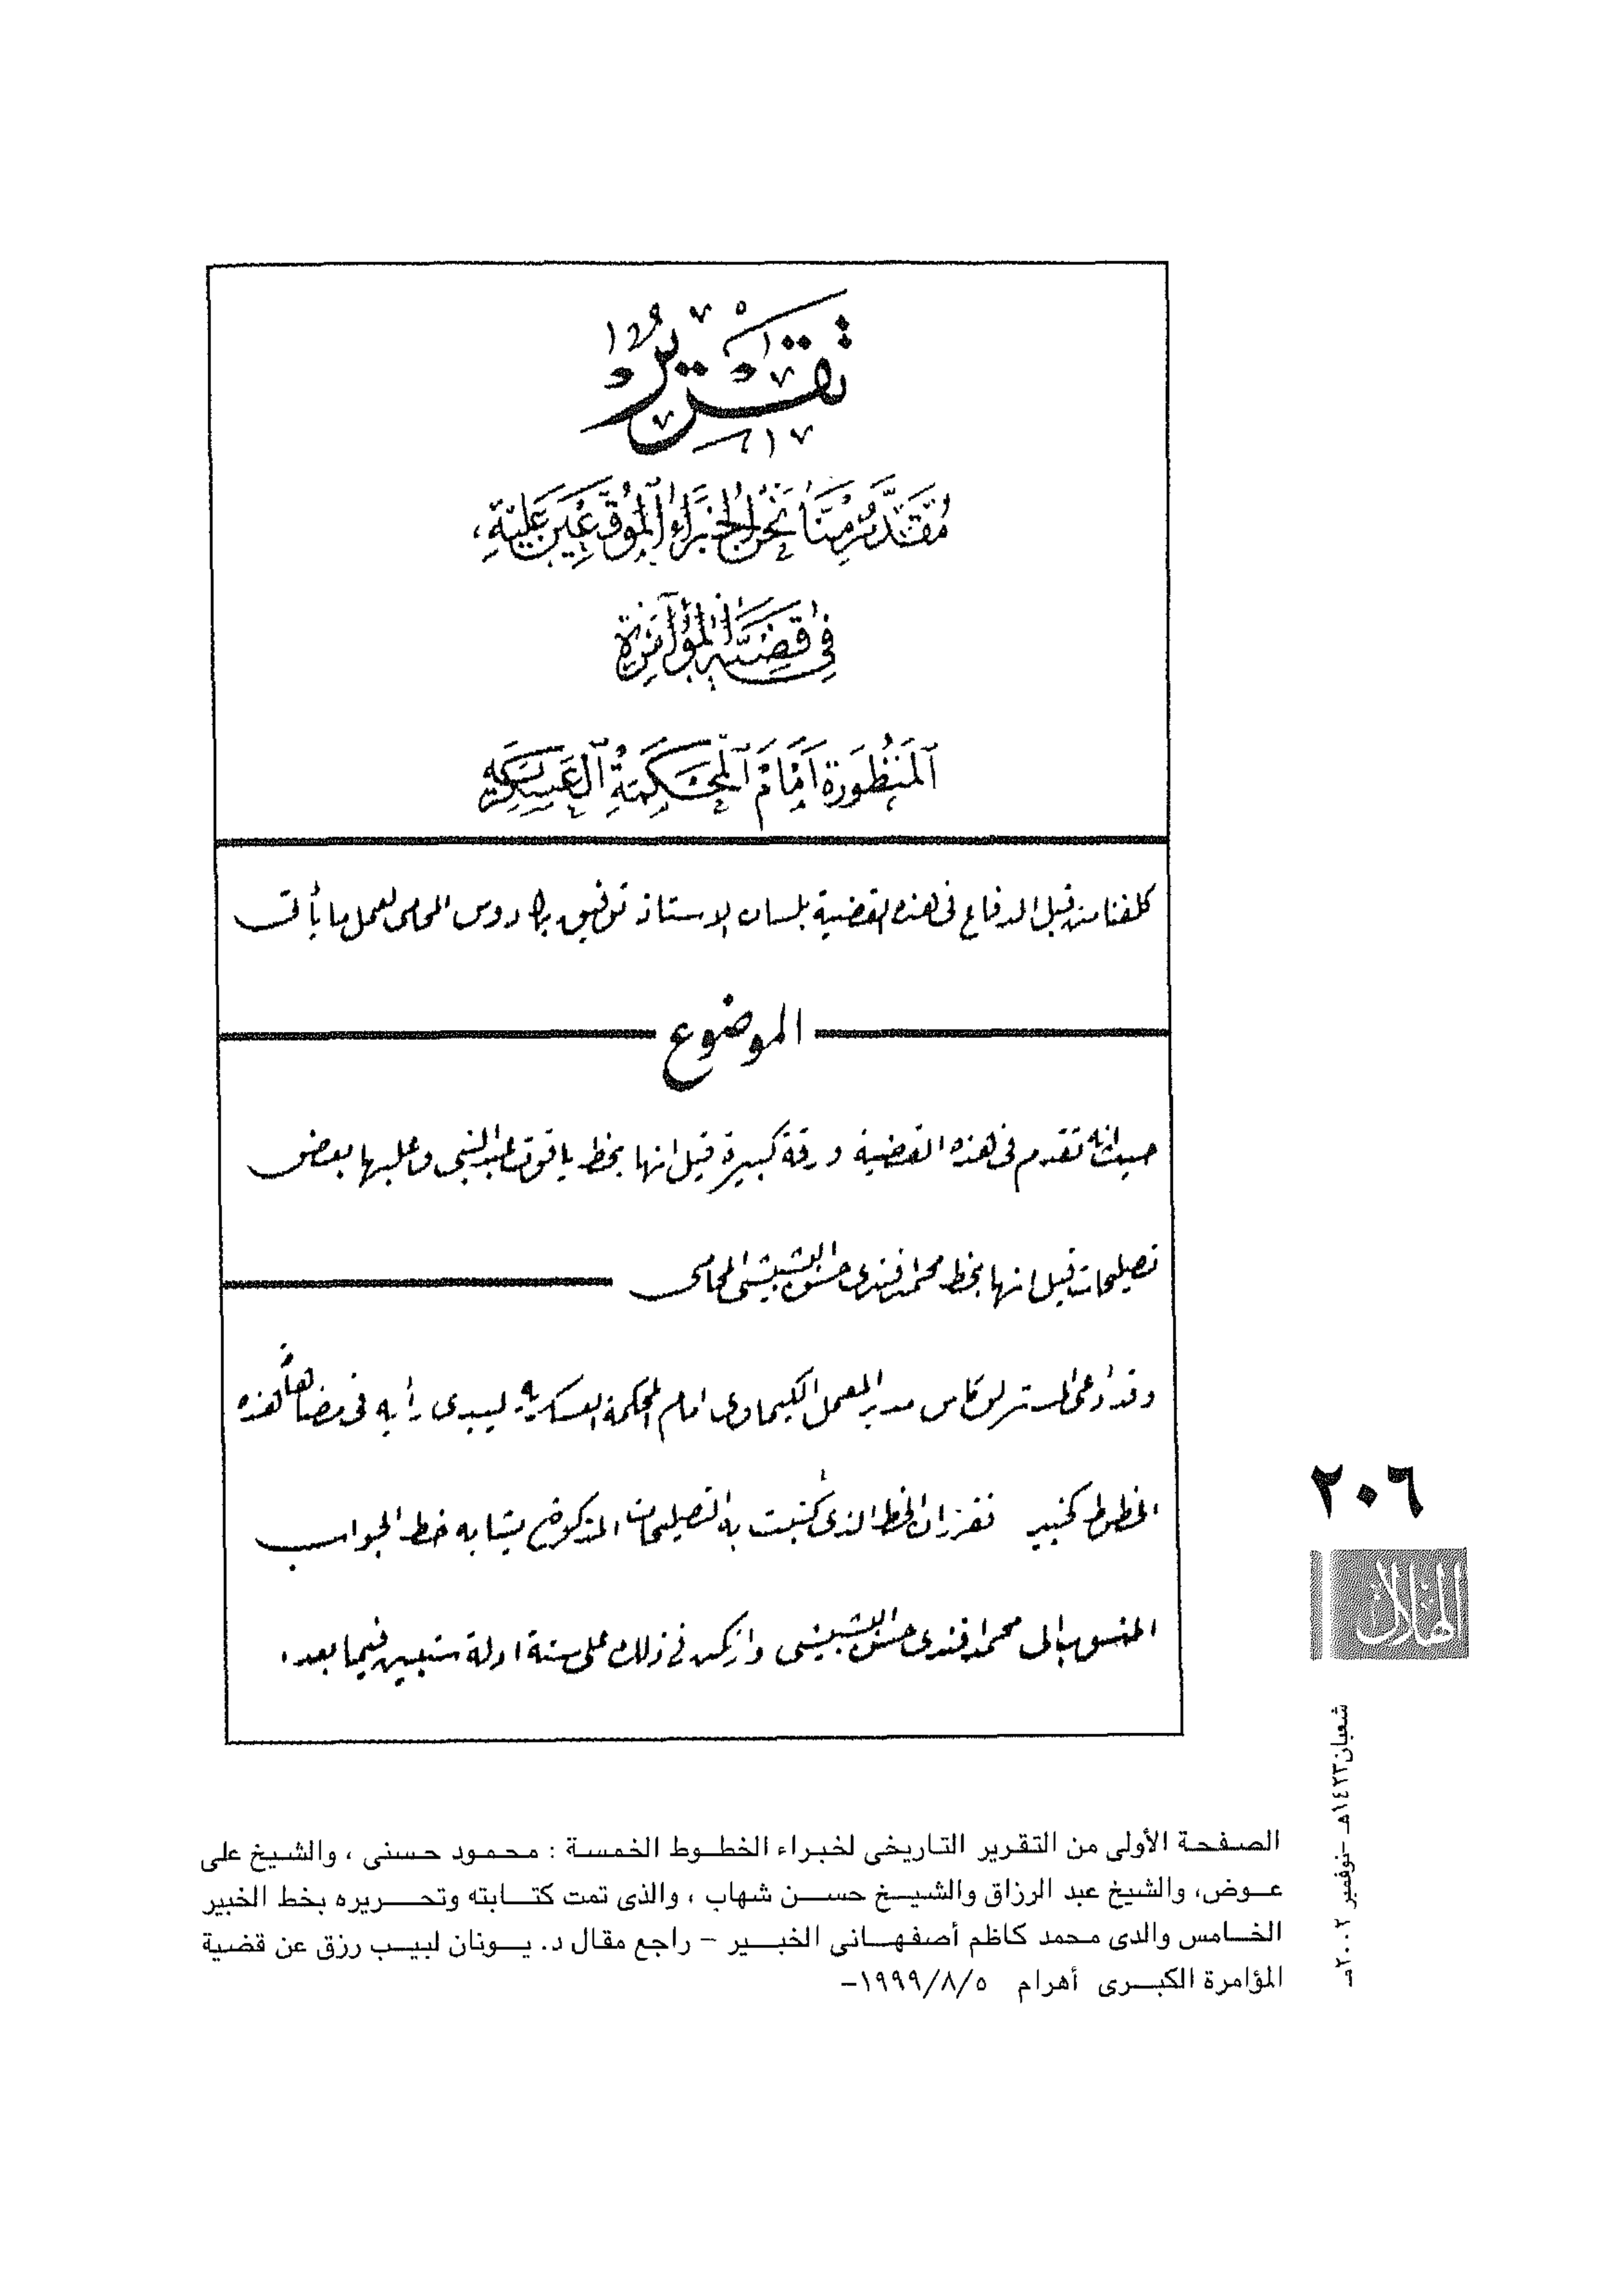 تقرير
مقدم منا نحن الخبراء الموقعين عليه،
في قضية المؤامرة
المنظورة أمام المحكمة العسكرية
كلفنا من قبل الدفاع فى هذه القضية بلسان الاستاذ توفيق دوس المحامى لعمل ما يأتى
الموضوع
حيث انه تقدم فى هذه القضية ورقة كبيرة قيل انها بخط ياقوت عبد النبى وعليها بعض
تصليحات قيل انها بخط محمد افندى حسن البشبيشى المحامى
وقد أدعى المستر لوكاس مدير المعمل الكيماوى امام المحكمة العسكرية ليبدى رأيه فى مضاهاة هذه
الخطوط كخبير فقرر ان الخط الذى كتبت به التصليحات المذكورة يشابه خط الجواب
المنسوب الى محمد افندى حسن البشبيشى وارتكن فى ذلك على ستة ادلة ستبين فيما بعد.
٢٠٦
الهلال
شعبان ١٤٢٣هـ - نوفمبر ٢٠٠٢مـ
الصفحة الأولى من التقرير التاريخى لخبراء الخطوط الخمسة : محمود حسنى ، والشيخ على
عوض، والشيخ عبد الرزاق والشيخ حسن شهاب ، والذى تمت كتابته وتحريره بخط الخبير
الخامس والدى محمد كاظم أصفهانى الخبير – راجع مقال د. يونان لبيب رزق عن قضية
المؤامرة الكبرى أهرام ١٩٩٩/٨/٥–